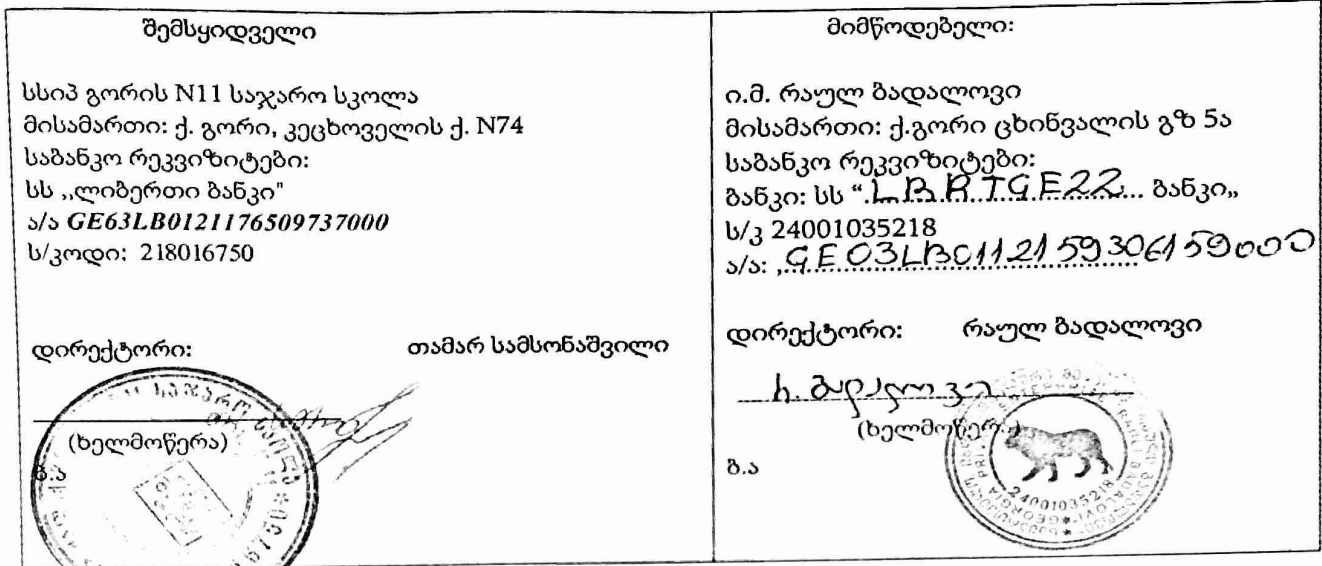 შემსყიდველი
სსიპ გორის N11 საჯარო სკოლა
მისამართი: ქ. გორი, კეცხოველის ქ. N74
საბანკო რეკვიზიტები:
სს ,,ლიბერთი ბანკი"
ა/ა GE63LB0121176509737000
ს/კოდი: 218016750
დირექტორი: თამარ სამსონაშვილი
(ხელმოწერა)
ბ.ა
მიმწოდებელი:
ი.მ. რაულ ბადალოვი
მისამართი: ქ.გორი ცხინვალის გზ 5ა
საბანკო რეკვიზიტები:
ბანკი: სს “.LBRTGE22... ბანკი„
ს/კ 24001035218
ა/ა: GE03LB0112159306159000
დირექტორი: რაულ ბადალოვი
რ. ბადალოვი
(ხელმოწერა)
ბ.ა
24001035218